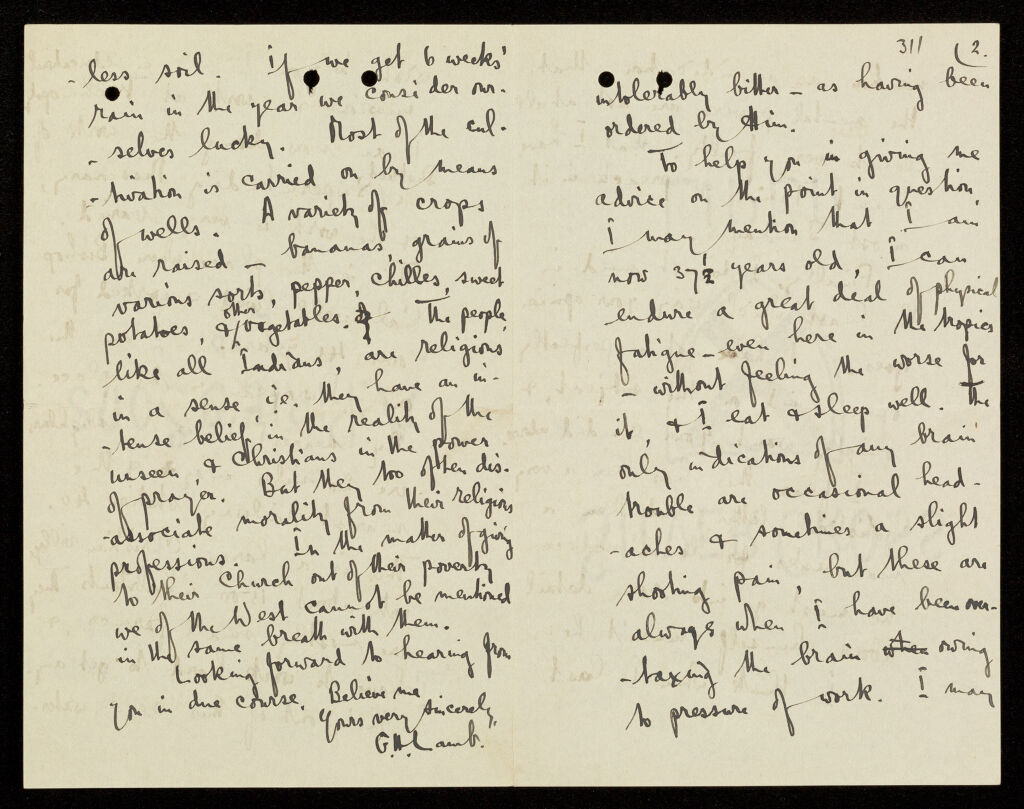 -less soil. If we get 6 weeks'
rain in the year we consider our-
-selves lucky. Most of the cul-
-tivation is carried on by means
of wells. A variety of crops
are raised — bananas, grains of
various sorts, pepper, chilles, sweet
potatoes, & other vegetables. The people,
like all Indians, are religious
in a sense, i.e. they have an in-
-tense belief in the reality of the
unseen, & Christians in the power
of prayer. But they too often dis-
-associate morality from their religious
professions. In the matter of giving
to their Church out of their poverty
we of the West cannot be mentioned
in the same breath with them.
Looking forward to hearing from
you in due course, Believe me
Yours very sincerely,
G.H. Lamb.
311 (2.
intolerably bitter — as having been
ordered by Him.
To help you in giving me
advice on the point in question
I may mention that I am
now 37½ years old, I can
endure a great deal of physical
fatigue — even here in the tropics
— without feeling the worse for
it, & I eat & sleep well. The
only indications of any brain
trouble are occasional head-
-aches & sometimes a slight
shooting pain, but these are
always when I have been over-
-taxing the brain when owing
to pressure of work. I may